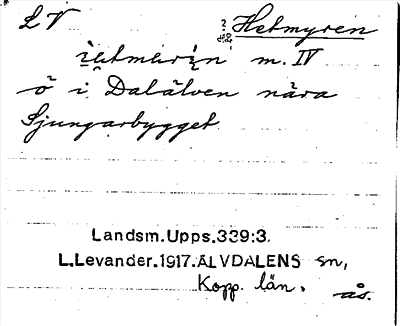 LV ? Hetmyren
m. IV
ö i Dalälven nära
Ljungarbygget
Landsm.Upps.339:3.
L.Levander.1917.ÄLVDALENS sn,
Kopp. län.
ås.